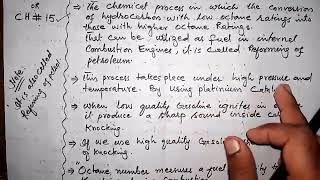 or
CH # 15
Note
it is associated
Reforming of petrol
⇒ The chemical process in which the conversion
of hydrocarbon with low octane ratings into
those with higher octane Ratings.
That can be utilized as fuel in internal
Combustion Engine, it is called Reforming of
petroleum.
⇒ This process takes place under high pressure and
temperature. By using platinium
⇒ when low quality Gasoline ignites in
it produce a sharp sound inside
knocking.
⇒ If we use high quality
of knocking.
⇒ "Octane number measures a fuel